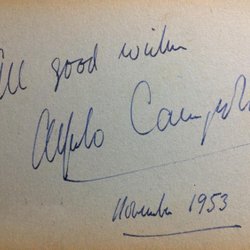 All good wishes
Alfredo Campoli
November 1953